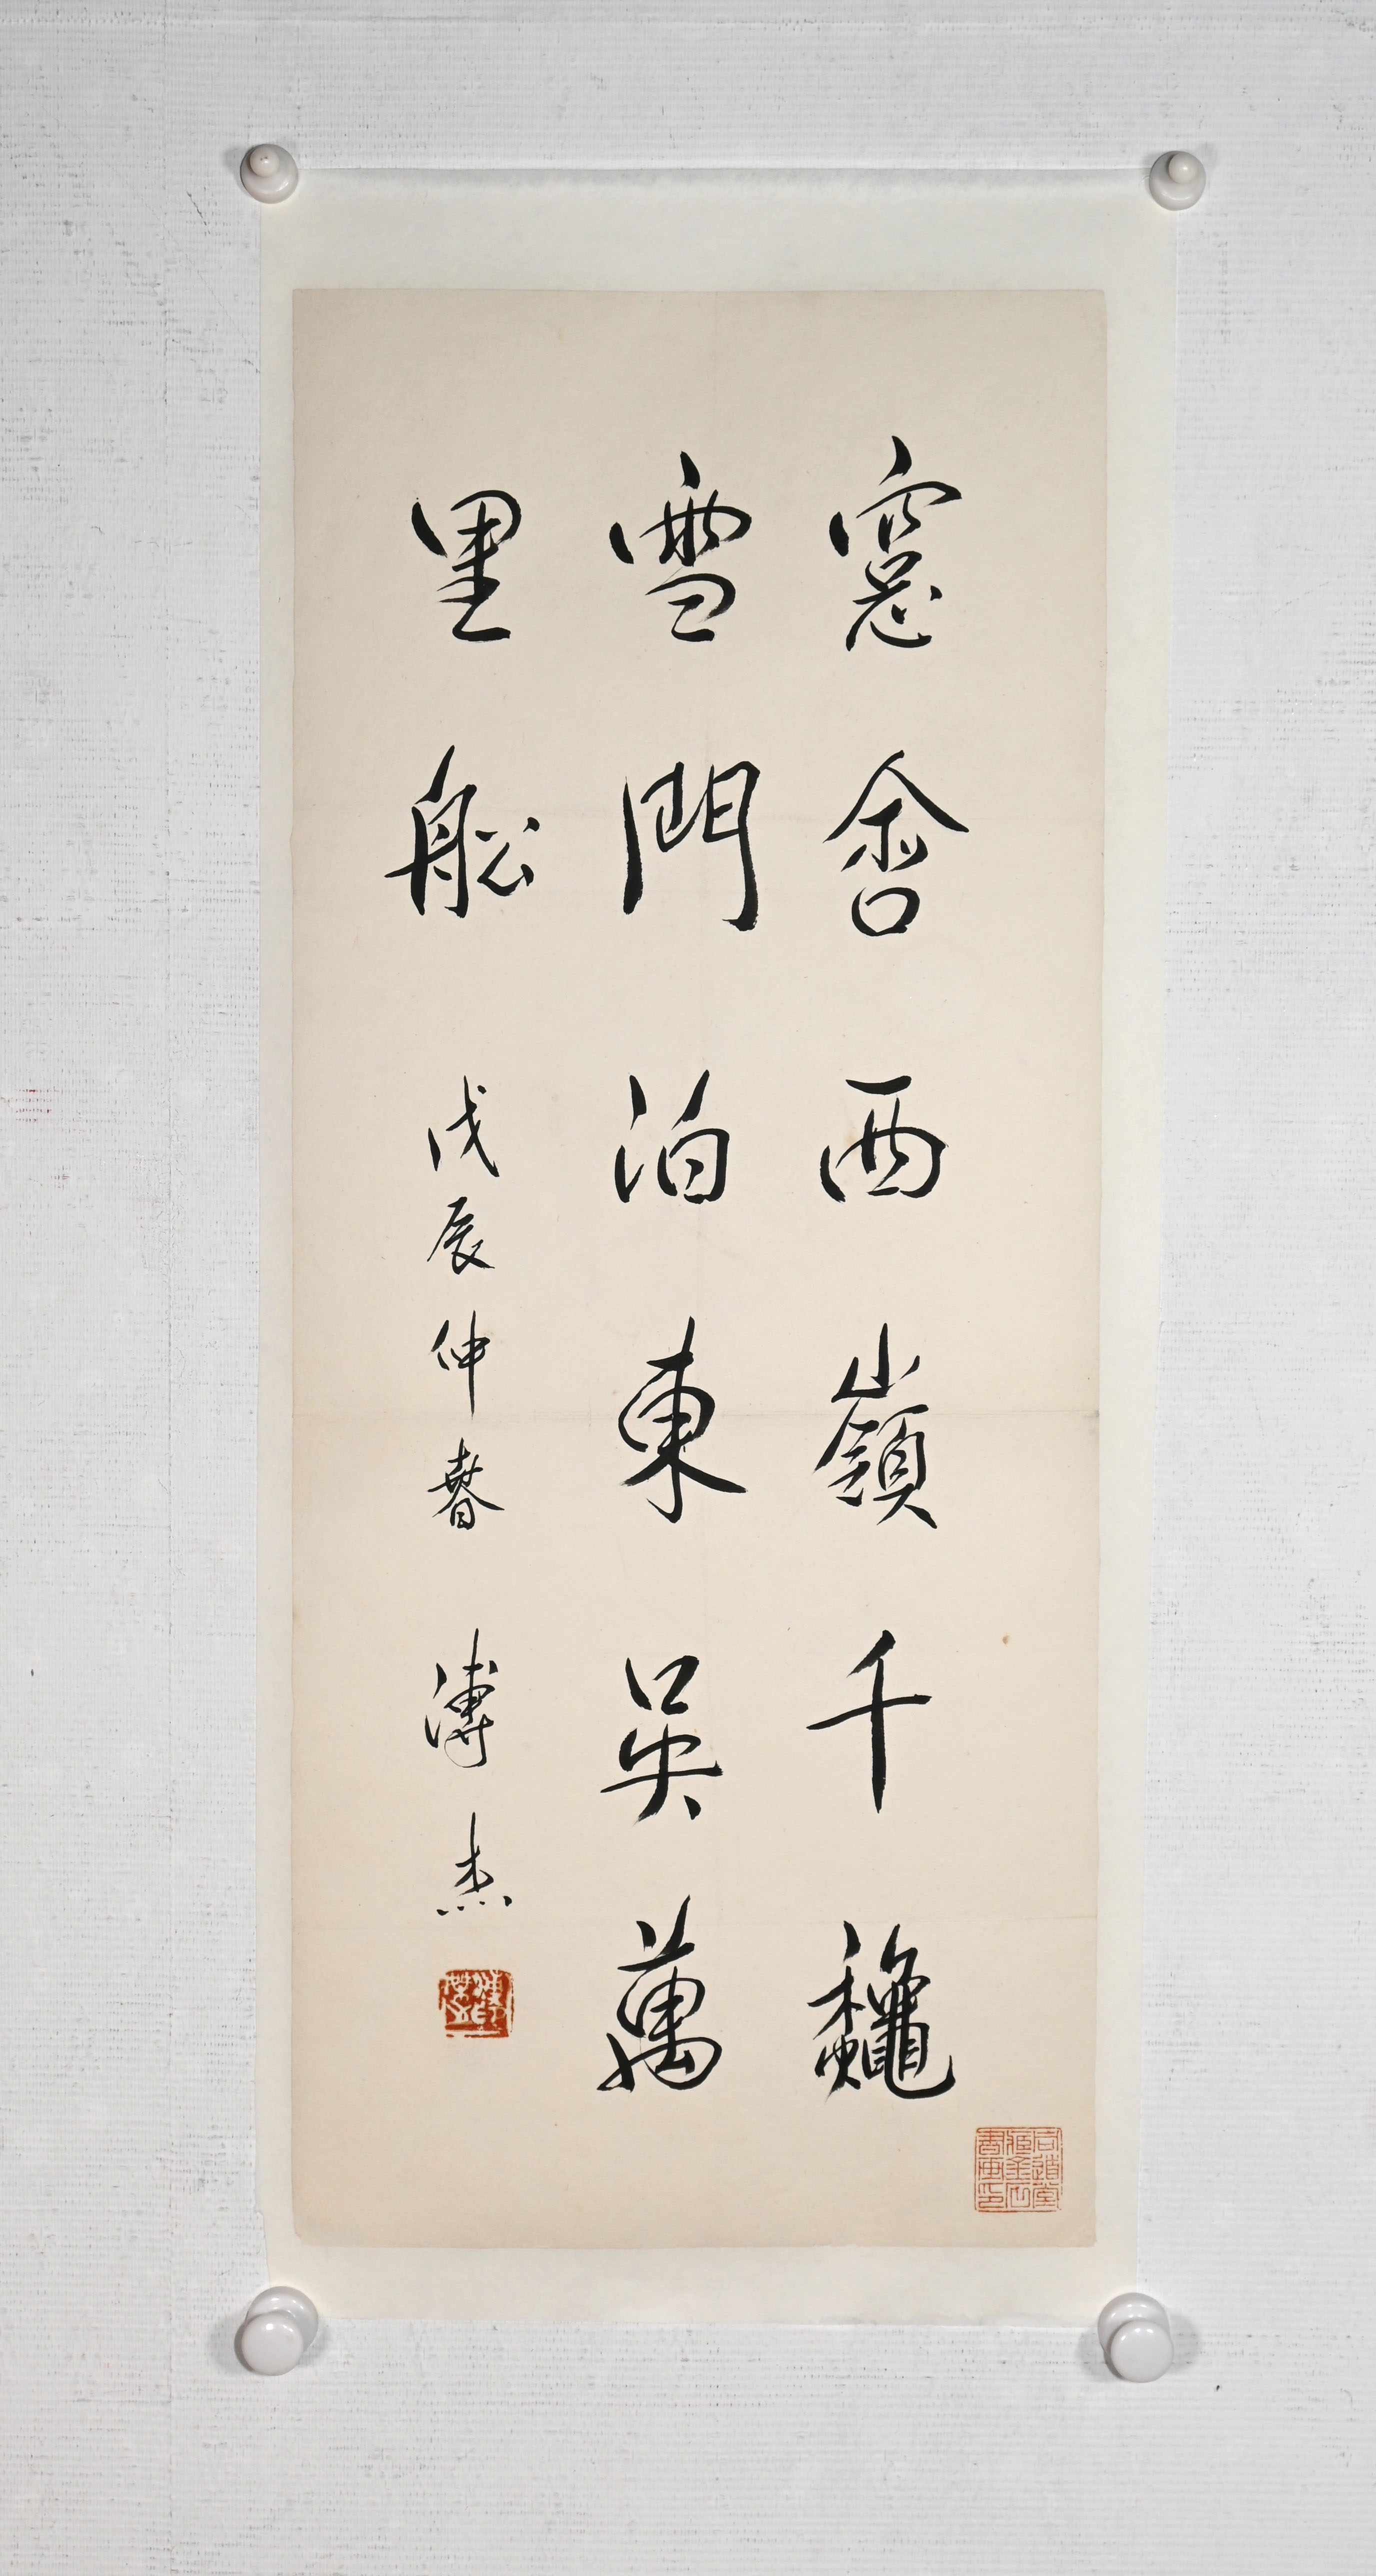 窻含西嶺千龝
雪門泊東吳萬
里舩 戊辰仲春 溥杰